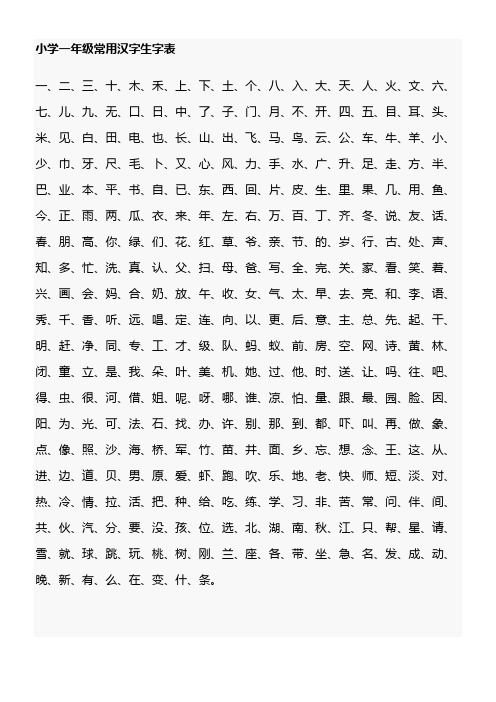 小学一年级常用汉字生字表
一、二、三、十、木、禾、上、下、土、个、八、入、大、天、人、火、文、六、
七、儿、九、无、口、日、中、了、子、门、月、不、开、四、五、目、耳、头、
米、见、白、田、电、也、长、山、出、飞、马、鸟、云、公、车、牛、羊、小、
少、巾、牙、尺、毛、卜、又、心、风、力、手、水、广、升、足、走、方、半、
巴、业、本、平、书、自、已、东、西、回、片、皮、生、里、果、几、用、鱼、
今、正、雨、两、瓜、衣、来、年、左、右、万、百、丁、齐、冬、说、友、话、
春、朋、高、你、绿、们、花、红、草、爷、亲、节、的、岁、行、古、处、声、
知、多、忙、洗、真、认、父、扫、母、爸、写、全、完、关、家、看、笑、着、
兴、画、会、妈、合、奶、放、午、收、女、气、太、早、去、亮、和、李、语、
秀、千、香、听、远、唱、定、连、向、以、更、后、意、主、总、先、起、干、
明、赶、净、同、专、工、才、级、队、蚂、蚁、前、房、空、网、诗、黄、林、
闭、童、立、是、我、朵、叶、美、机、她、过、他、时、送、让、吗、往、吧、
得、虫、很、河、借、姐、呢、呀、哪、谁、凉、怕、量、跟、最、园、脸、因、
阳、为、光、可、法、石、找、办、许、别、那、到、都、吓、叫、再、做、象、
点、像、照、沙、海、桥、军、竹、苗、井、面、乡、忘、想、念、王、这、从、
进、边、道、贝、男、原、爱、虾、跑、吹、乐、地、老、快、师、短、淡、对、
热、冷、情、拉、活、把、种、给、吃、练、学、习、非、苦、常、问、伴、间、
共、伙、汽、分、要、没、孩、位、选、北、湖、南、秋、江、只、帮、星、请、
雪、就、球、跳、玩、桃、树、刚、兰、座、各、带、坐、急、名、发、成、动、
晚、新、有、么、在、变、什、条。